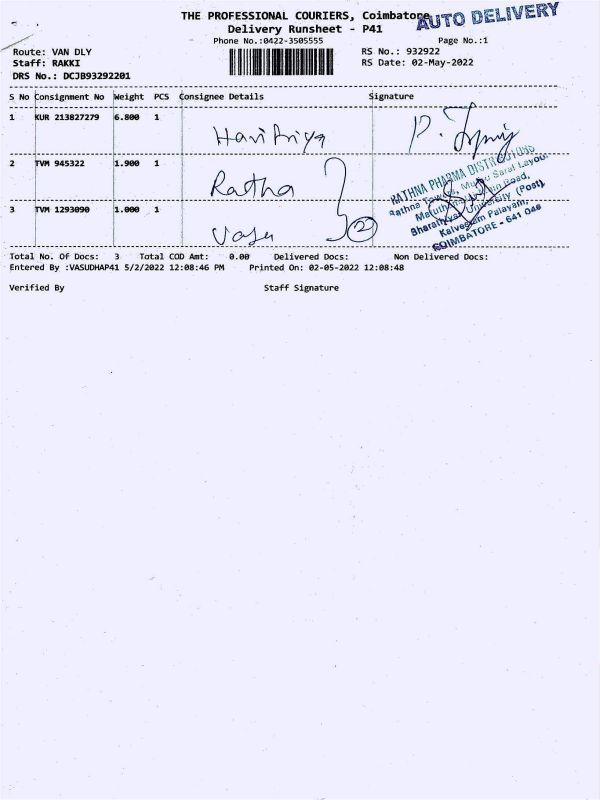 THE PROFESSIONAL COURIERS, Coimbatore
AUTO DELIVERY
Delivery Runsheet - P41
Phone No.:0422-3505555
Page No.:1
Route: VAN DLY
RS No.: 932922
Staff: RAKKI
RS Date: 02-May-2022
DRS No.: DCJB93292201
S No Consignment No Weight PCS Consignee Details Signature
1 KUR 213827279 6.800 1
Hari Priya
2 TVM 945322 1.900 1
Ratha
RATHNA PHARMA DISTRIBUTORS
Rathna Towers, Saral Layout
Road,
Bharathiyar University (Post),
Kalveerampalayam,
COIMBATORE - 641 046
3 TVM 1293090 1.000 1
Vasu
2
Total No. Of Docs: 3 Total COD Amt: 0.00 Delivered Docs: Non Delivered Docs:
Entered By :VASUDHAP41 5/2/2022 12:08:46 PM Printed On: 02-05-2022 12:08:48
Verified By Staff Signature